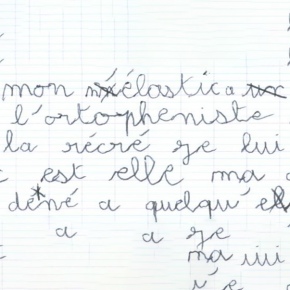 mon élastica
l'ortopheniste
la récré ge lui
est elle ma
déné a quelqu'el
a a ge
ma